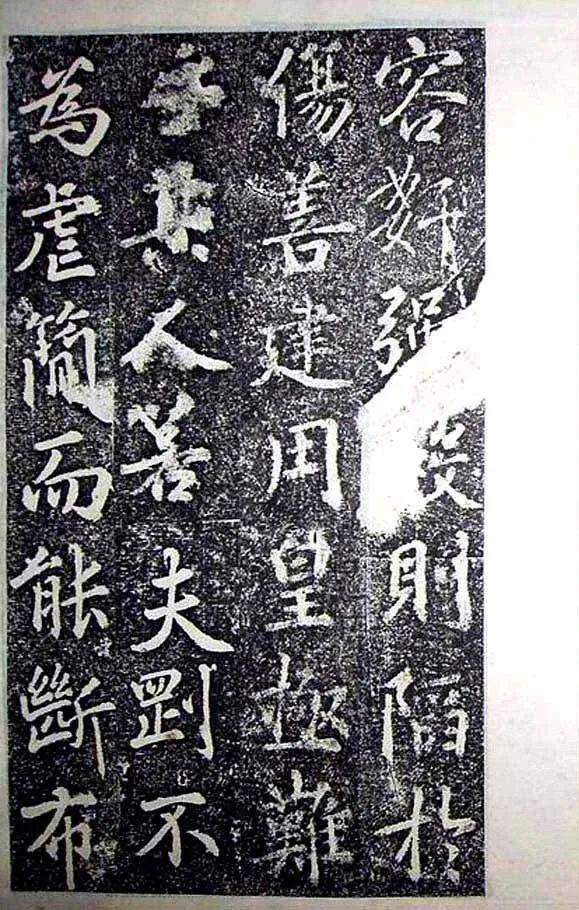 容姧強毅則陷於
傷善建用皇極難
乎其人若夫剛不
為虐簡而能斷布